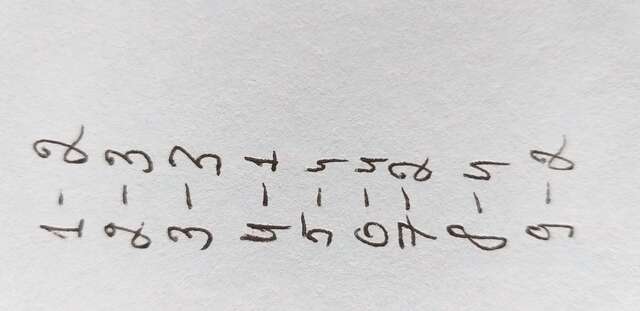 1 - 2
2 - 3
3 - 3
4 - 1
5 - 5
6 - 5
7 - 2
8 - 5
9 - 2